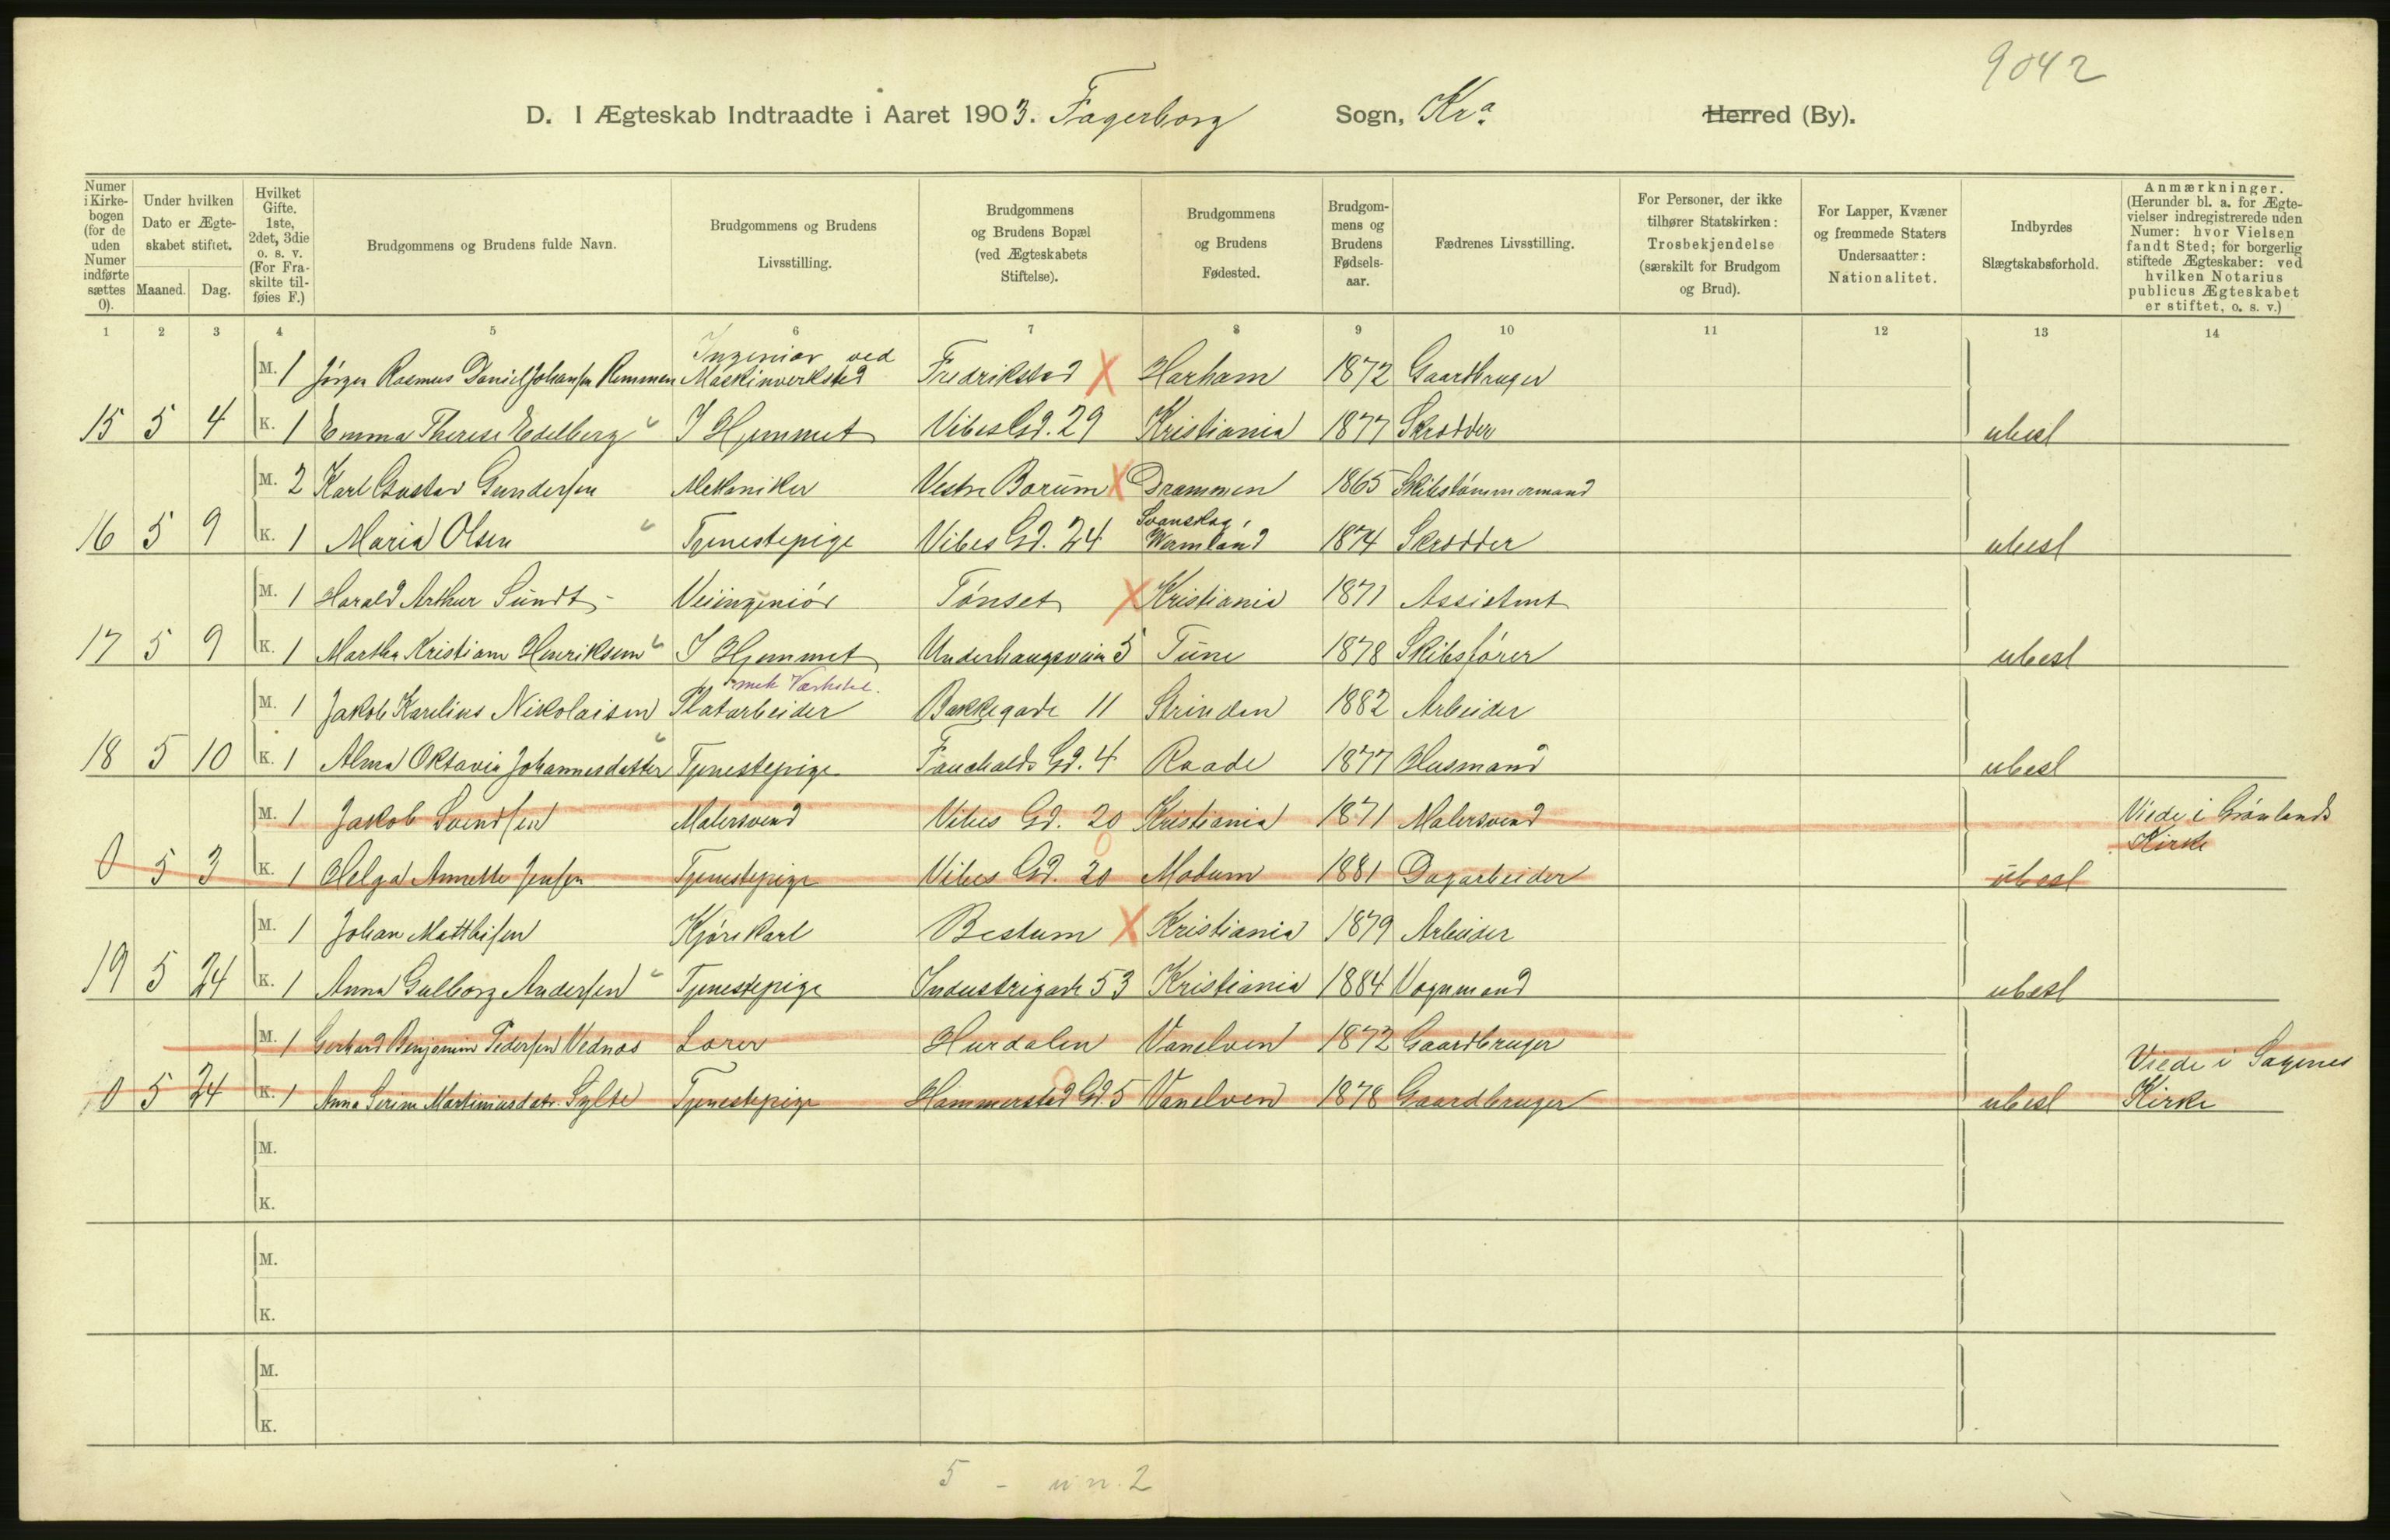 9042
D. I Ægteskab Indtraadte i Aaret 1903. Fagerborg Sogn, Kra. Herred (By).
Numer i Kirke-bogen (for de uden Numer indførte sættes 0).
Under hvilken Dato er Ægte-skabet stiftet.
Maaned. Dag.
Hvilket Gifte. 1ste, 2det, 3die o. s. v. (For Fra-skilte til-føies F.)
Brudgommens og Brudens fulde Navn.
Brudgommens og Brudens Livsstilling.
Brudgommens og Brudens Bopæl (ved Ægteskabets Stiftelse).
Brudgommens og Brudens Fødested.
Brudgom-mens og Brudens Fødsels-aar.
Fædrenes Livsstilling.
For Personer, der ikke tilhører Statskirken: Trosbekjendelse (særskilt for Brudgom og Brud).
For Lapper, Kvæner og fremmede Staters Undersaatter: Nationalitet.
Indbyrdes Slægtskabsforhold.
Anmærkninger. (Herunder bl. a. for Ægte-vielser indregistrerede uden Numer: hvor Vielsen fandt Sted; for borgerlig stiftede Ægteskaber: ved hvilken Notarius publicus Ægteskabet er stiftet, o. s. v.)
1 2 3 4 5 6 7 8 9 10 11 12 13 14
Ingeniør ved
M. 1 Jørgen Rasmus Daniel Johansen Remmen Maskinverksted Fredrikstad X Harham 1872 Gaardbruger
15 5 4 K. 1 Emma Therese Edelberg I Hjemmet Vibes Gd. 29 Kristiania 1877 Skrædder ubesl
M. 2 Karl Gustav Gundersen Mekaniker Vestre Bærum X Drammen 1865 Skibstømmermand
Svanskog,
16 5 9 K. 1 Maria Olsen Tjenestepige Vibes Gd. 24 Wermland 1874 Skrædder ubesl
M. 1 Harald Arthur Sundt Veiingeniør Tønset X Kristiania 1871 Assistent
17 5 9 K. 1 Martha Kristiane Henriksen I Hjemmet Underhaugsveien 5 Tune 1878 Skibsfører ubesl
mek Værksted.
M. 1 Jakob Karelius Nikolaisen Platarbeider Bakkegade 11 Strinden 1882 Arbeider
18 5 10 K. 1 Alma Oktavia Johannesdatter Tjenestepige Fauchalds Gd. 4 Raade 1877 Husmand ubesl
M. 1 Jakob Svendsen Malersvend Vibes Gd. 20 Kristiania 1871 Malersvend Viede i Grønlands
Kirke
0 5 3 K. 1 Helga Annette Jensen Tjenestepige Vibes Gd. 20 Modum 1881 Dagarbeider ubesl
M. 1 Johan Matthisen Kjørekarl Bestum X Kristiania 1879 Arbeider
19 5 24 K. 1 Anna Gulborg Andersen Tjenestepige Industrigade 53 Kristiania 1884 Vognmand ubesl
M. 1 Gerhard Benjamin Pedersen Vednæs Lærer Hurdalen Vanelven 1872 Gaardbruger Viede i Sagenes
0 5 24 K. 1 Anna Serine Martiniusdatr. Sylte Tjenestepige Hammerstad Gd. 5 Vanelven 1878 Gaardbruger ubesl Kirke
M.
K.
M.
K.
M.
K.
5 - u n. 2